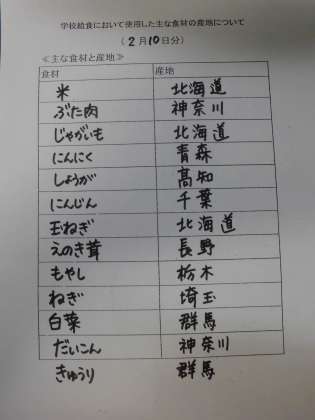 学校給食において使用した主な食材の産地について
(2月10日分)
≪主な食材と産地≫
食材 産地
米 北海道
ぶた肉 神奈川
じゃがいも 北海道
にんにく 青森
しょうが 高知
にんじん 千葉
玉ねぎ 北海道
えのき茸 長野
もやし 栃木
ねぎ 埼玉
白菜 群馬
だいこん 神奈川
きゅうり 群馬